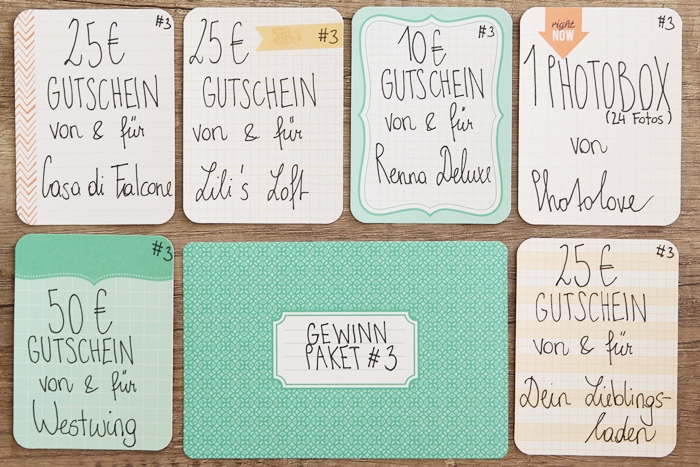 #3
25€
GUTSCHEIN
von & für
Casa di Falcone
#3
25€
GUTSCHEIN
von & für
Lili's Loft
#3
10€
GUTSCHEIN
von & für
Renna Deluxe
right
NOW
#3
1 PHOTOBOX
(24 Fotos)
von
Photolove
#3
50€
GUTSCHEIN
von & für
Westwing
GEWINN
PAKET #3
#3
25€
GUTSCHEIN
von & für
Dein Lieblings-
laden